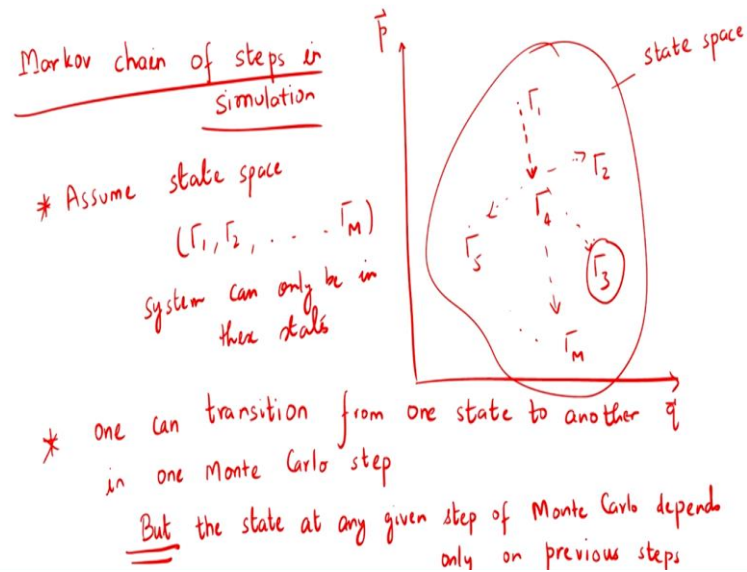 Markov chain of steps in
simulation
* Assume state space
(Γ₁, Γ₂, . . . . Γ_M)
system can only be in
these states
p⃗
state space
Γ₁
Γ₂
Γ₄
Γ₅
Γ₃
Γ_M
q⃗
* one can transition from one state to another
in one Monte Carlo step
But the state at any given step of Monte Carlo depends
only on previous steps